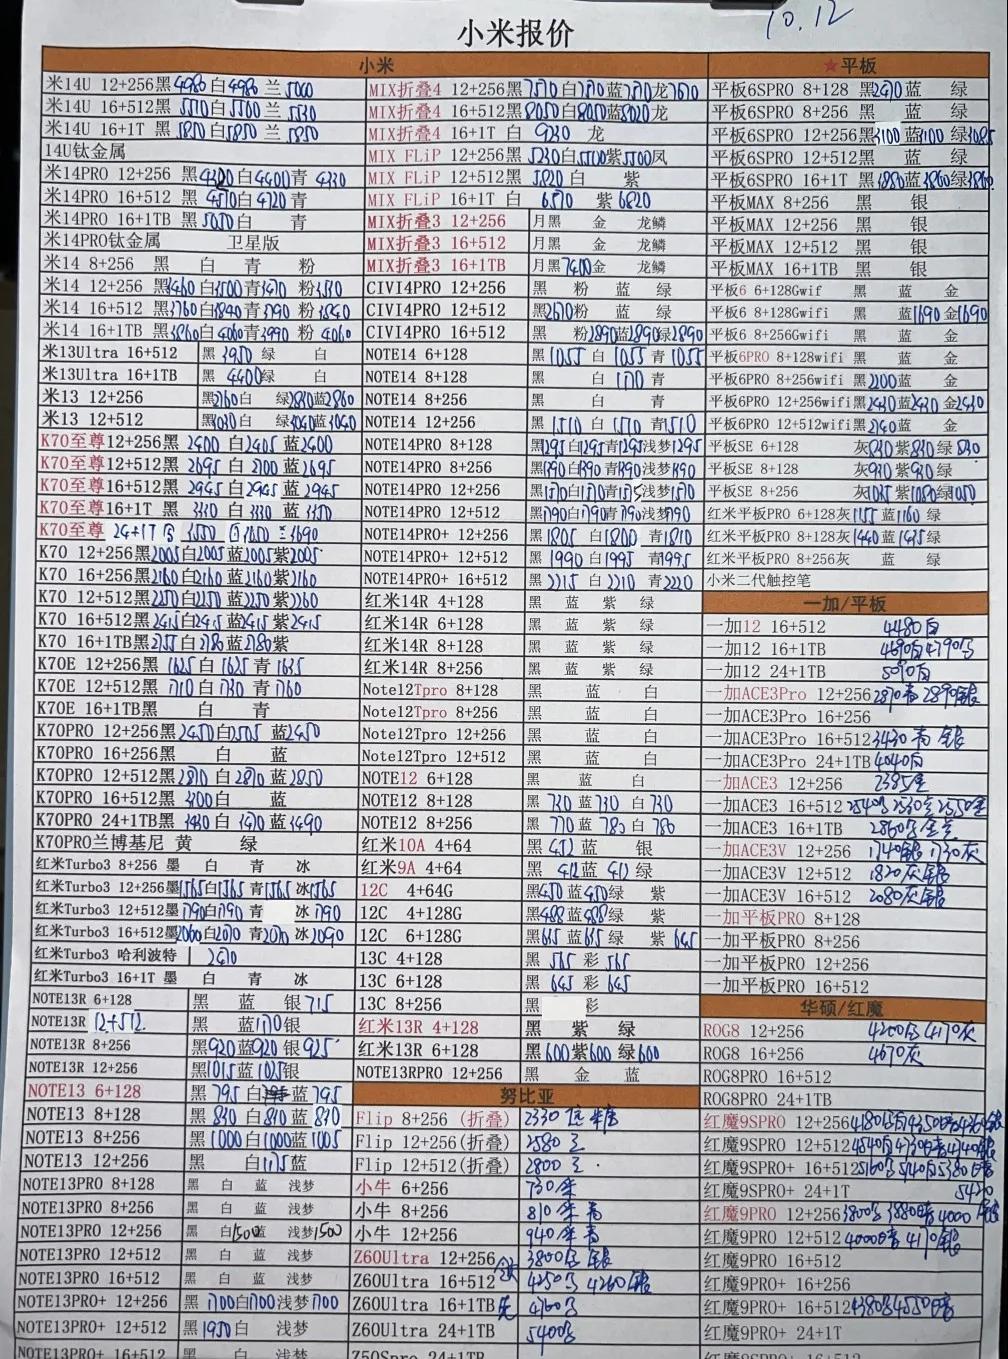 10.12
小米报价
小米
米14U 12+256黑4980白4980 兰 5000
米14U 16+512黑 5510白5500 兰 5530
米14U 16+1T 黑 5850白5850 兰 5850
14U钛金属
米14PRO 12+256 黑4300白4400青 4330
米14PRO 16+512 黑 4510白4720 青
米14PRO 16+1TB 黑5050白 青
米14PRO钛金属 卫星版
米14 8+256 黑 白 青 粉
米14 12+256 黑3460白3500青3470 粉3530
米14 16+512 黑3760白3840青3790 粉3840
米14 16+1TB 黑3860白4060青3990 粉 4060
米13Ultra 16+512 黑 3950 绿 白
米13Ultra 16+1TB 黑 4400绿 白
米13 12+256 黑2760白 绿2830蓝2860
米13 12+512 黑3030白 绿3040蓝3040
K70至尊12+256黑 2400 白2405 蓝2400
K70至尊12+512黑 2695 白 2700 蓝2695
K70至尊16+512黑 2945 白2945 蓝 2945
K70至尊16+1T 黑 3330 白 3330 蓝 3350
K70至尊 24+1T
K70 12+256黑2005白2005 蓝2005紫2005
K70 16+256黑2160白2160 蓝2160紫2160
K70 12+512 黑2250白2250 蓝2250 紫2260
K70 16+512 黑2415白2415 蓝2415 紫2415
K70 16+1TB黑2755 白2780 蓝2780紫
K70E 12+256黑 1625 白 1625 青 1635
K70E 12+512黑 1710 白 1730 青 1760
K70E 16+1TB黑 白 青
K70PRO 12+256黑2450白2505 蓝2450
K70PRO 16+256黑 白 蓝
K70PRO 12+512黑 2810 白 2870 蓝 2850
K70PRO 16+512黑 3100白 蓝
K70PRO 24+1TB黑 3430 白 3470 蓝3490
K70PRO兰博基尼 黄 绿
红米Turbo3 8+256 墨 白 青 冰
红米Turbo3 12+256墨1565白1565 青1565 冰1565
红米Turbo3 12+512墨1790白1790 青 冰 1790
红米Turbo3 16+512墨2060白2070 青2070 冰 2090
红米Turbo3 哈利波特 2470
红米Turbo3 16+1T 墨 白 青 冰
NOTE13R 6+128 黑 蓝 银715
NOTE13R 12+512 黑 蓝1170银
NOTE13R 8+256 黑920蓝920 银 925
NOTE13R 12+256 黑1015蓝 1025银
NOTE13 6+128 黑 795 白 蓝795
NOTE13 8+128 黑 830 白 810 蓝 830
NOTE13 8+256 黑1000白1000蓝1005
NOTE13 12+256 黑 白1175蓝
NOTE13PRO 8+128 黑 白 蓝 浅梦
NOTE13PRO 8+256 黑 白 蓝 浅梦
NOTE13PRO 12+256 黑 白1500蓝 浅梦1500
NOTE13PRO 12+512 黑 白 蓝 浅梦
NOTE13PRO 16+512 黑 白 蓝 浅梦
NOTE13PRO+ 12+256 黑 1700白1700浅梦 1700
NOTE13PRO+ 12+512 黑 1950白 浅梦
NOTE13PRO+ 16+512 黑 白 浅梦
MIX折叠4 12+256黑 白 蓝 龙7610
MIX折叠4 16+512黑8050白8050蓝8020龙
MIX折叠4 16+1T 白 9230 龙
MIX FLiP 12+256黑 5230白5500紫5500凤
MIX FLiP 12+512黑 5820 白 紫
MIX FLiP 16+1T 白 6570 紫 6620
MIX折叠3 12+256 月黑 金 龙鳞
MIX折叠3 16+512 月黑 金 龙鳞
MIX折叠3 16+1TB 月黑7400金 龙鳞
CIVI4PRO 12+256 黑 粉 蓝 绿
CIVI4PRO 12+256 黑2670粉 蓝 绿
CIVI4PRO 16+512 黑 粉2890蓝2890绿2890
NOTE14 6+128 黑 1055 白 1055 青 1055
NOTE14 8+128 黑 白 1170 青
NOTE14 8+256 黑 白 青
NOTE14 12+256 黑 1510 白 1570 青1510
NOTE14PRO 8+128 黑1295 白1295青1295浅梦1295
NOTE14PRO 8+256 黑1390白1390 青1390浅梦1390
NOTE14PRO 12+256 黑1570白1570青1575浅梦1570
NOTE14PRO 12+512 黑1790白1790青1790浅梦1790
NOTE14PRO+ 12+256 黑1805 白 1800 青1810
NOTE14PRO+ 12+512 黑 1990 白 1995 青1995
NOTE14PRO+ 16+512 黑 2215 白 2210 青2220
红米14R 4+128 黑 蓝 紫 绿
红米14R 6+128 黑 蓝 紫 绿
红米14R 8+128 黑 蓝 紫 绿
红米14R 8+256 黑 蓝 紫 绿
Note12Tpro 8+128 黑 蓝 白
Note12Tpro 8+256 黑 蓝 白
Note12Tpro 12+256 黑 蓝 白
Note12Tpro 12+512 黑 蓝 白
NOTE12 6+128 黑 蓝 白
NOTE12 8+128 黑 730 蓝 730 白 730
NOTE12 8+256 黑 770 蓝 780 白 780
红米10A 4+64 黑 452 蓝 银
红米9A 4+64 黑 412蓝 412 绿
12C 4+64G 黑450 蓝450绿 紫
12C 4+128G 黑488蓝488绿 紫
12C 6+128G 黑645 蓝645 绿 紫 645
13C 4+128 黑 565 彩 565
13C 6+128 黑 645 彩 645
13C 8+256 黑 彩
红米13R 4+128 黑 紫 绿
红米13R 6+128 黑600紫600 绿600
NOTE13RPRO 12+256 黑 金 蓝
努比亚
Flip 8+256 (折叠) 2330
Flip 12+256(折叠) 2580
Flip 12+512(折叠) 2800
小牛 6+256 730
小牛 8+256 810 青
小牛 12+256 940 青
Z60Ultra 12+256 3800 银
Z60Ultra 16+512 4250 4260银
Z60Ultra 16+1TB 4760
Z60Ultra 24+1TB 5400
Z50Spro 24+1TB
★平板
平板6SPRO 8+128 黑2470蓝 绿
平板6SPRO 8+256 黑 蓝 绿
平板6SPRO 12+256黑3100 蓝3100 绿3085
平板6SPRO 12+512黑 蓝 绿
平板6SPRO 16+1T 黑3880蓝3860绿3860
平板MAX 8+256 黑 银
平板MAX 12+256 黑 银
平板MAX 12+512 黑 银
平板MAX 16+1TB 黑 银
平板6 6+128Gwif 黑 蓝 金
平板6 8+128Gwifi 黑 蓝1690金1690
平板6 8+256Gwifi 黑 蓝 金
平板6PRO 8+128wifi 黑 蓝 金
平板6PRO 8+256wifi 黑2200蓝 金
平板6PRO 12+256wifi黑2430蓝2430 金2430
平板6PRO 12+512wifi黑2740蓝 金
平板SE 6+128 灰830紫830 绿 830
平板SE 8+128 灰930 紫930 绿
平板SE 8+256 灰1035 紫1050绿1050
红米平板PRO 6+128灰1155 蓝1160 绿
红米平板PRO 8+128灰1440 蓝1435 绿
红米平板PRO 8+256灰 蓝 绿
小米二代触控笔
一加/平板
一加12 16+512 4480白
一加12 16+1TB 4690白4790
一加12 24+1TB 5090白
一加ACE3Pro 12+256 2870青 2890银
一加ACE3Pro 16+256
一加ACE3Pro 16+512 3430 青 银
一加ACE3Pro 24+1TB 4040白
一加ACE3 12+256 2385金
一加ACE3 16+512
一加ACE3 16+1TB 2860
一加ACE3V 12+256 1740银 1730灰
一加ACE3V 12+512 1820灰银
一加ACE3V 16+512 2080灰银
一加平板PRO 8+128
一加平板PRO 8+256
一加平板PRO 12+256
一加平板PRO 16+512
华硕/红魔
ROG8 12+256 4200白 4170灰
ROG8 16+256 4670灰
ROG8PRO 16+512
ROG8PRO 24+1TB
红魔9SPRO 12+256
红魔9SPRO 12+512
红魔9SPRO+ 16+512
红魔9SPRO+ 24+1T 5420
红魔9PRO 12+256
红魔9PRO 12+512
红魔9PRO 16+512
红魔9PRO+ 16+256
红魔9PRO+ 16+512
红魔9PRO+ 24+1T